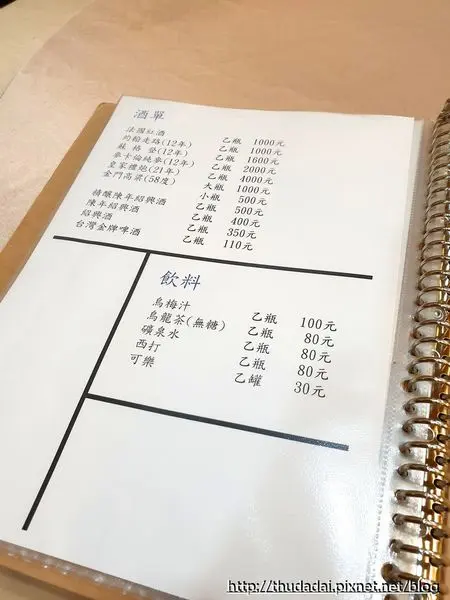 酒單
法國紅酒 乙瓶 1000元
約翰走路(12年) 乙瓶 1000元
蘇格登(12年) 乙瓶 1600元
麥卡倫純麥(12年) 乙瓶 2000元
皇家禮炮(21年) 乙瓶 4000元
金門高粱(58度) 大瓶 1000元
小瓶 500元
精釀陳年紹興酒 乙瓶 500元
陳年紹興酒 乙瓶 400元
紹興酒 乙瓶 350元
台灣金牌啤酒 乙瓶 110元
飲料
烏梅汁 乙瓶 100元
烏龍茶(無糖) 乙瓶 80元
礦泉水 乙瓶 80元
西打 乙瓶 80元
可樂 乙罐 30元
http://thudadai.pixnet.net/blog